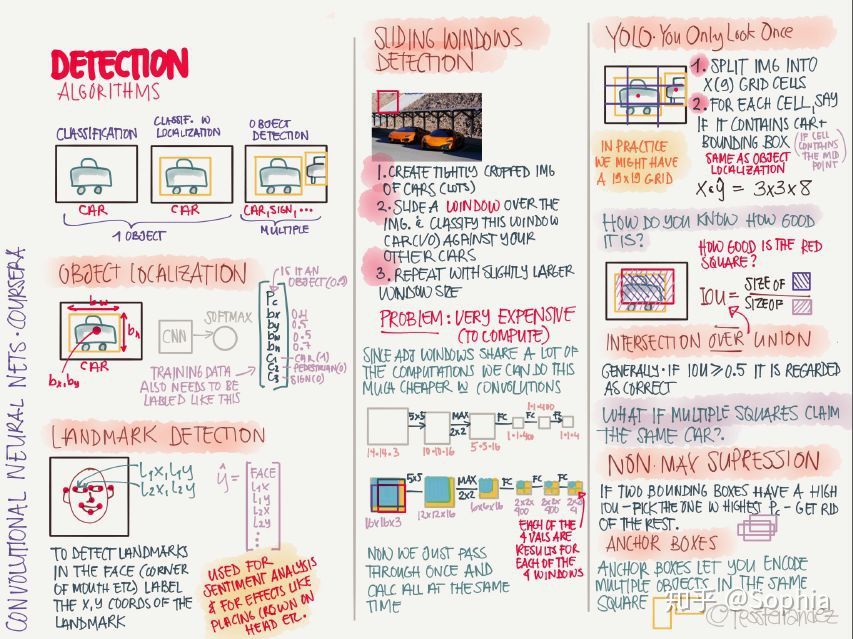 CONVOLUTIONAL NEURAL NETS · COURSERA
DETECTION
ALGORITHMS
CLASSIFICATION
CLASSIF. W
LOCALIZATION
OBJECT
DETECTION
CAR
CAR
CAR, SIGN, ...
1 OBJECT
MULTIPLE
OBJECT LOCALIZATION
bw
bh
bx,by
CAR
CNN
SOFTMAX
IS IT AN
OBJECT(0.9)
Pc
bx 0.4
by 0.5
bw 0.5
bh 0.7
C1 CAR(1)
C2 PEDESTRIAN(0)
C3 SIGN(0)
TRAINING DATA
ALSO NEEDS TO BE
LABELED LIKE THIS
LANDMARK DETECTION
l1x, l1y
l2x, l2y
ŷ =
FACE
l1x
l1y
l2x
l2y
⋮
TO DETECT LANDMARKS
IN THE FACE (CORNER
OF MOUTH ETC) LABEL
THE X,Y COORDS OF THE
LANDMARK
USED FOR
SENTIMENT ANALYSIS
& FOR EFFECTS LIKE
PLACING CROWN ON
HEAD ETC.
SLIDING WINDOWS
DETECTION
1. CREATE TIGHTLY CROPPED IMG
OF CARS (LOTS)
2. SLIDE A WINDOW OVER THE
IMG. & CLASSIFY THIS WINDOW
CAR(1/0) AGAINST YOUR
OTHER CARS
3. REPEAT WITH SLIGHTLY LARGER
WINDOW SIZE
PROBLEM: VERY EXPENSIVE
(TO COMPUTE)
SINCE ADJ WINDOWS SHARE A LOT OF
THE COMPUTATIONS WE CAN DO THIS
MUCH CHEAPER W CONVOLUTIONS
5x5 MAX 2x2 FC FC
14·14·3 10·10·16 5·5·16 1·1·400 1·1·400 1·1·4
5x5 MAX 2x2 FC FC FC
16x16x3 12x12x16 6x6x16 2x2x400 2x2x400 2x2x4
EACH OF THE
4 VALS ARE
RESULTS FOR
EACH OF THE
4 WINDOWS
NOW WE JUST PASS
THROUGH ONCE AND
CALC ALL AT THE SAME
TIME
YOLO · You Only Look Once
1. SPLIT IMG INTO
X(9) GRID CELLS
2. FOR EACH CELL, SAY
IF IT CONTAINS CAR +
BOUNDING BOX (IF CELL
CONTAINS
THE MID
POINT)
IN PRACTICE
WE MIGHT HAVE
A 19x19 GRID
SAME AS OBJECT
LOCALIZATION
X & ŷ = 3x3x8
HOW DO YOU KNOW HOW GOOD
IT IS?
HOW GOOD IS THE RED
SQUARE?
IOU = SIZE OF
SIZE OF
INTERSECTION OVER UNION
GENERALLY · IF IOU ≥ 0.5 IT IS REGARDED
AS CORRECT
WHAT IF MULTIPLE SQUARES CLAIM
THE SAME CAR?
NON·MAX SUPRESSION
IF TWO BOUNDING BOXES HAVE A HIGH
IOU - PICK THE ONE W HIGHEST Pc - GET RID
OF THE REST.
ANCHOR BOXES
ANCHOR BOXES LET YOU ENCODE
MULTIPLE OBJECTS IN THE SAME
SQUARE
知乎 @Sophia
©TessFerrandez